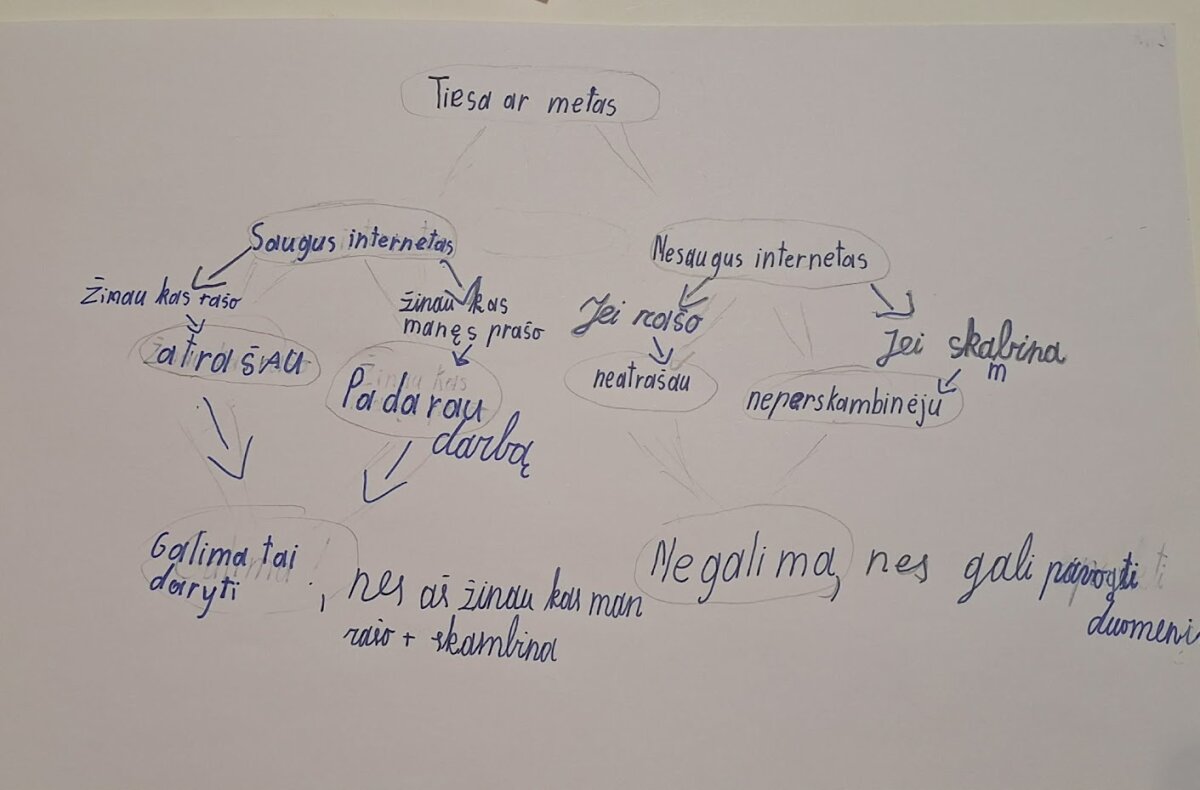 Tiesa ar metas
Saugus internetas
Nesaugus internetas
Žinau kas rašo
žinau kas
manęs prašo
Jei rašo
Jei skabina
m
atrašau
Padarau
darbą
neatrašau
neperskambinėju
Galima tai
daryti
, nes aš žinau kas man
rašo + skambina
Negalima, nes gali pavogti
duomenis